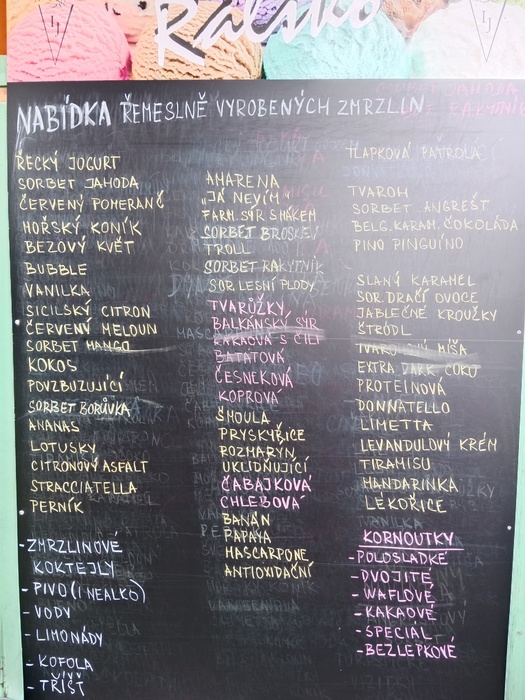 Ralsko
NABÍDKA ŘEMESLNĚ VYROBENÝCH ZMRZLIN
ŘECKÝ JOGURT
SORBET JAHODA
ČERVENÝ POMERANČ
HOŘSKÝ KONÍK
BEZOVÝ KVĚT
BUBBLE
VANILKA
SICILSKÝ CITRON
ČERVENÝ MELOUN
SORBET MANGO
KOKOS
POVZBUZUJÍCÍ
SORBET BORŮVKA
ANANAS
LOTUSKY
CITRONOVÝ ASFALT
STRACCIATELLA
PERNÍK
-ZMRZLINOVÉ
KOKTEJLY
- PIVO (I NEALKO)
- VODY
- LIMONÁDY
- KOFOLA
- TŘÍŠŤ
AMARENA
„JÁ NEVÍM"
FARM. SÝR S MÁKEM
SORBET BROSKEV
TROLL
SORBET RAKYTNÍK
SOR. LESNÍ PLODY
TVARŮŽKY
BALKÁNSKÝ SÝR
KAKAOVÁ S ČILI
BATÁTOVÁ
ČESNEKOVÁ
KOPROVÁ
ŠMOULA
PRYSKYŘICE
ROZMARÝN
UKLIDŇUJÍCÍ
ČABAJKOVÁ
CHLEBOVÁ
BANÁN
PAPAYA
MASCARPONE
ANTIOXIDAČNÍ
TLAPKOVÁ PATROLA
TVAROH
SORBET ANGREŠT
BELG. KARAM. ČOKOLÁDA
PINO PINGUÍNO
SLANÝ KARAMEL
SOR. DRAČÍ OVOCE
JABLEČNÉ KROUŽKY
ŠTRŮDL
TVAROH MÍŠA
EXTRA DARK ČOKO
PROTEINOVÁ
DONNATELLO
LIMETTA
LEVANDULOVÝ KRÉM
TIRAMISU
MANDARINKA
LÉKOŘICE
KORNOUTKY
-POLOSLADKÉ
-DVOJITÉ
- WAFLOVÉ
- KAKAOVÉ
-SPECIAL
-BEZLEPKOVÉ